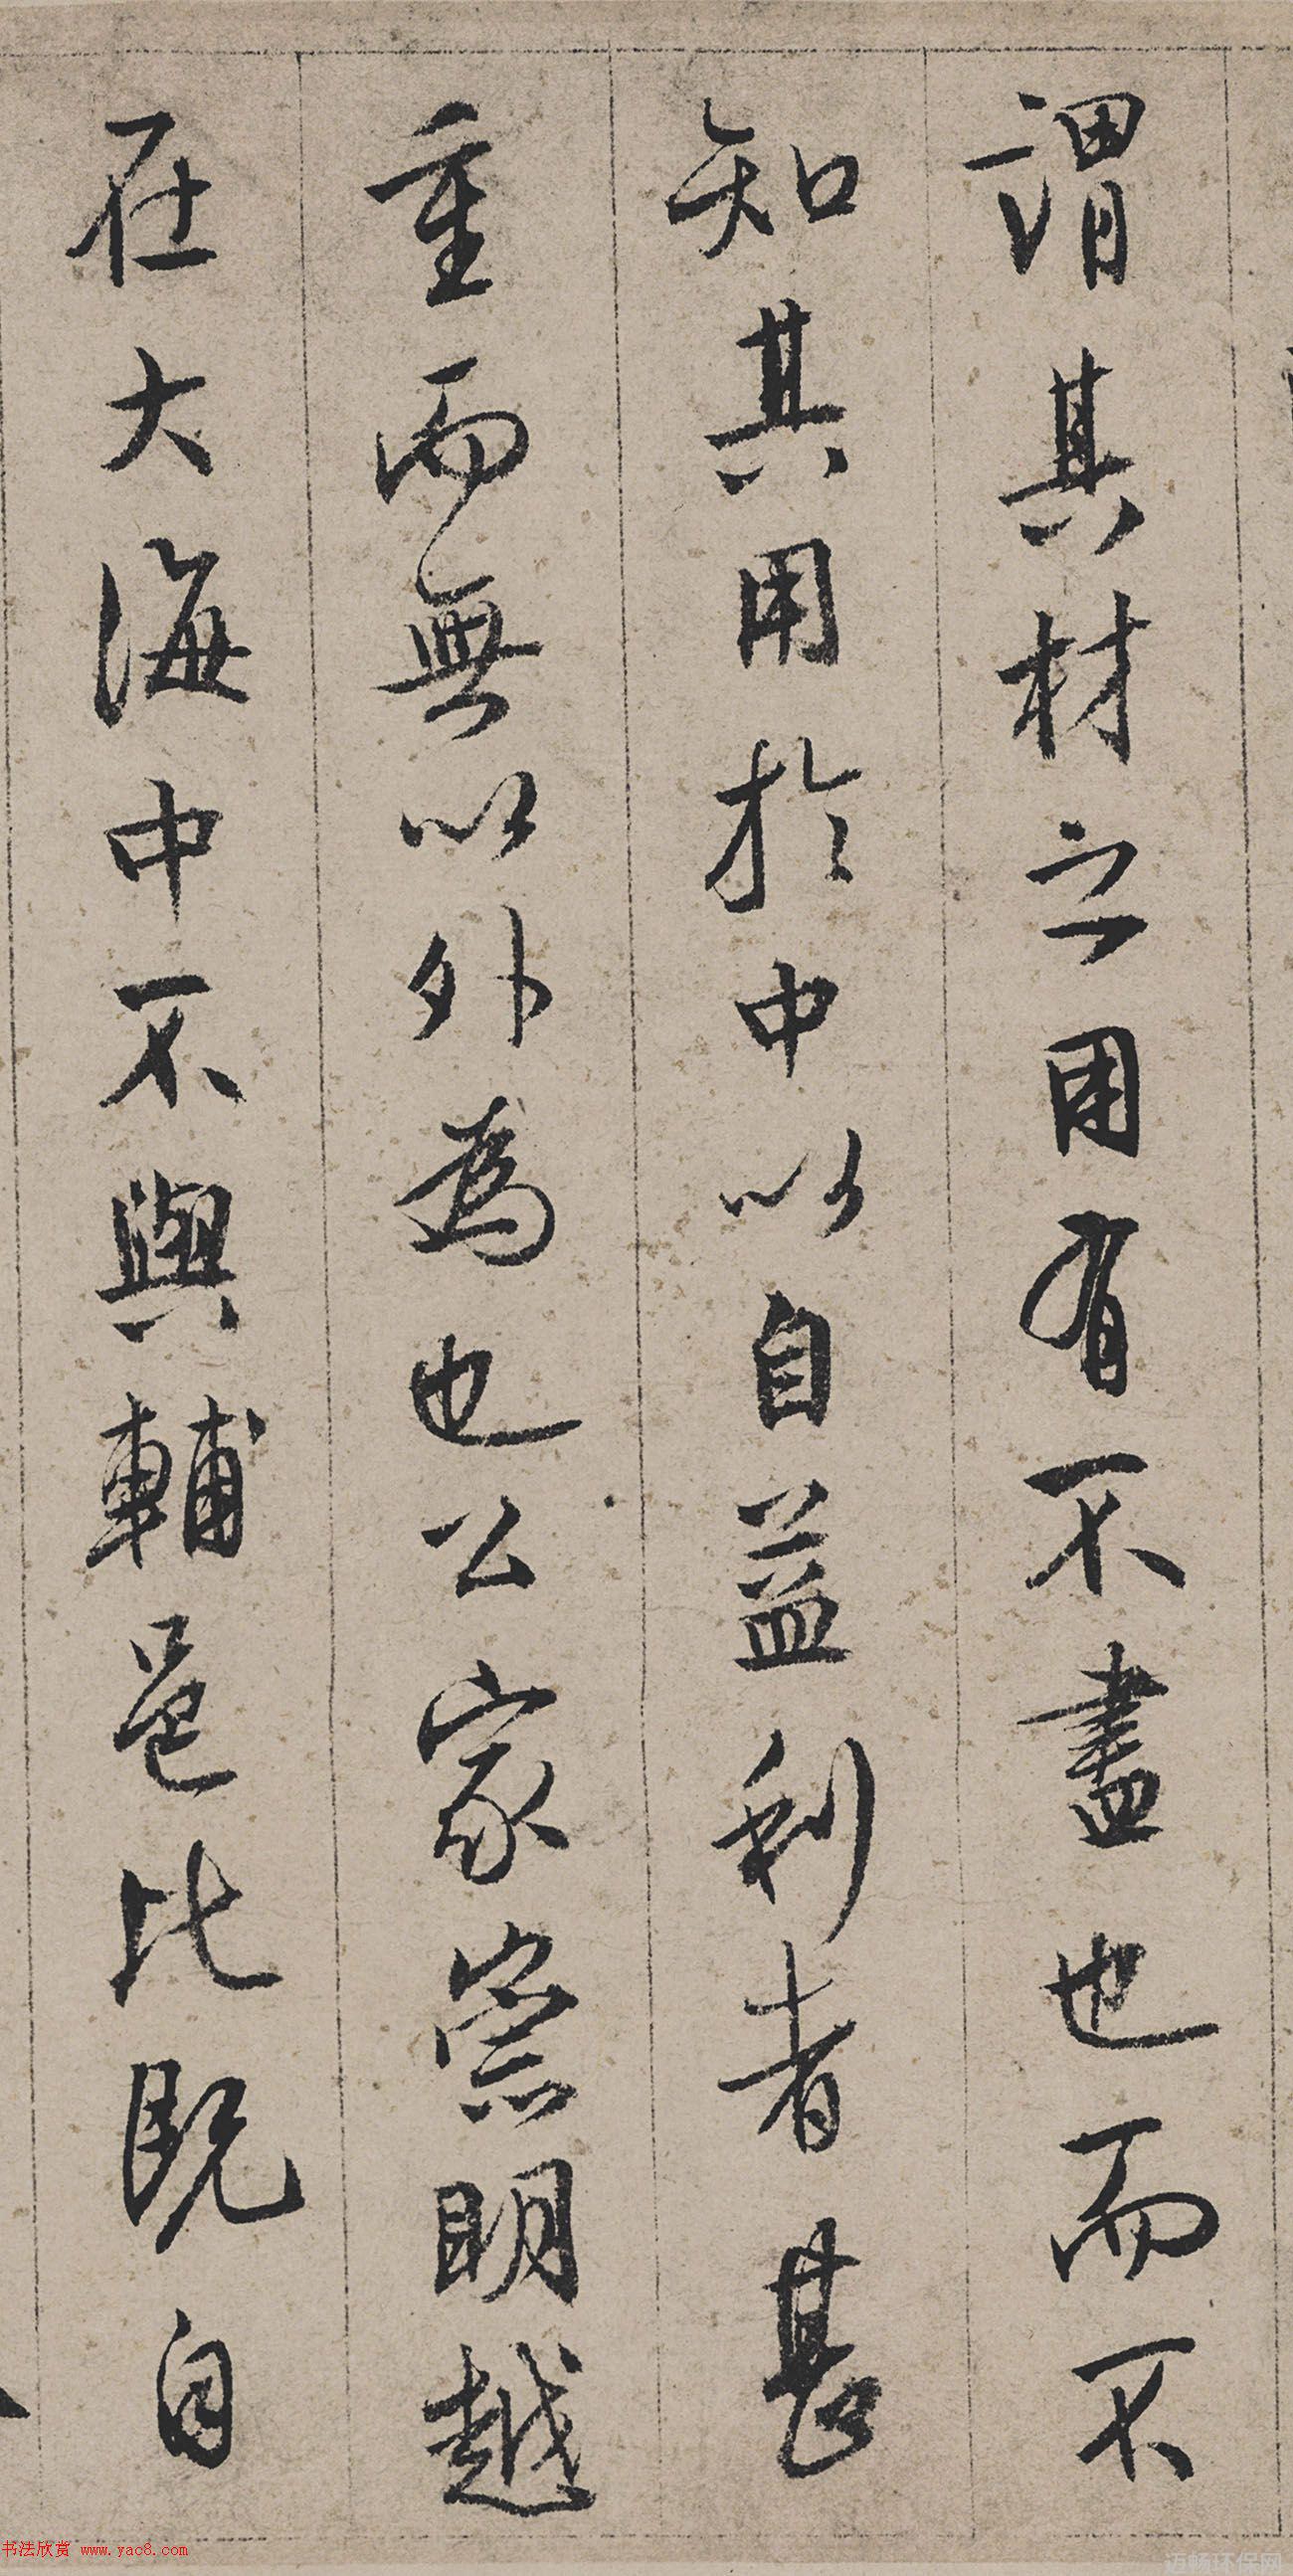 謂其材之用有不盡也而不
知其用於中以自益利者甚
重而無以外為也公家崇明越
在大海中不與輔邑比既自
书法欣赏 www.yac8.com
迈畅环保网